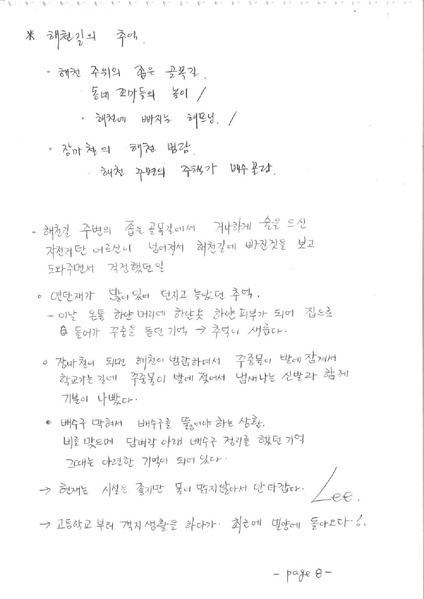 ※ 해천길의 추억.
- 해천 주위의 좁은 골목길.
동네 꼬마들의 놀이 /
- 해천에 빠지는 해프닝. /
- 장마철의 해천 범람.
해천 주변의 주택가 배수불량.
- 해천길 주변의 좁은 골목길에서 거나하게 술을 드신
자전거탄 어르신이 넘어져서 해천길에 빠진것을 보고
도와주면서 걱정했던일
○ 연탄재가 많이 있어 던지고 놀았던 추억.
- 이날 온통 하얀 머리에 하얀옷 하얀 피부가 되어 집으로
들어가 꾸중을 듣던 기억 → 추억이 새롭다.
○ 장마철이 되면 해천이 범람하여서 꾸중물이 발에 잠겨서
학교가는 길에 꾸중물이 발에 젖어서 냄새나는 신발과 함께
기분이 나빴다.
● 배수구 막혀서 배수구를 뚫어야 하는 상황.
비를 맞으며 담벼락 아래 배수구 정리를 했던 기억
그때는 아련한 기억이 되어 있다.
→ 현재는 시설은 좋지만 물이 맑지않아서 안타깝다.
Lee.
→ 고등학교 부터 객지 생활을 하다가 최근에 밀양에 돌아오다!.
- page 8 -